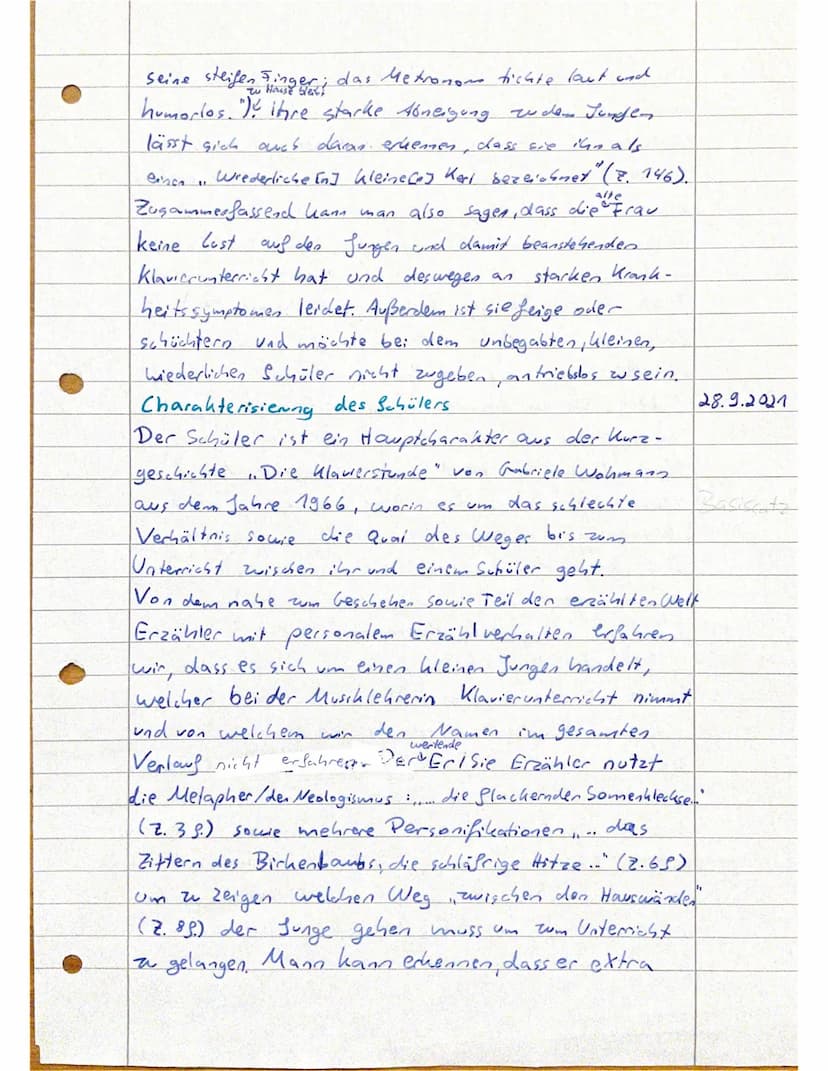 seine steifen Finger; das Metronom tickte laut und
zu Hause bleibt
humorlos.") ihre starke Abneigung zu dem Jungen
lässt sich auch daran erkennen, dass sie ihn als
einen „wiederliche[n] kleine[n] Kerl bezeichnet" (Z. 146).
alte
Zusammenfassend kann man also sagen, dass die Frau
keine Lust auf den Jungen und damit beanstehenden
Klavierunterricht hat und deswegen an starken Krank-
heitssymptomen leidet. Außerdem ist sie feige oder
schüchtern und möchte bei dem unbegabten, kleinen,
wiederlichen Schüler nicht zugeben, antriebslos zu sein.
Charakterisierung des Schülers 28.9.2021
Der Schüler ist ein Hauptcharakter aus der Kurz-
geschichte „Die Klavierstunde" von Gabriele Wohmann
aus dem Jahre 1966, worin es um das schlechte Basissatz
Verhältnis sowie die Qual des Weges bis zum
Unterricht zwischen ihr und einem Schüler geht.
Von dem nahe zum Geschehen sowie Teil der erzählten Welt
Erzähler mit personalem Erzählverhalten erfahren
wir, dass es sich um einen kleinen Jungen handelt,
welcher bei der Musiklehrerin Klavierunterricht nimmt
und von welchem wir den Namen im gesamten
wertende
Verlauf nicht erfahren. Der Er/Sie Erzähler nutzt
die Metapher/den Neologismus: „... die flackernden Sonnenkleckse.."
(Z. 3f.) sowie mehrere Personifikationen „.. das
Zittern des Birkenlaubs, die schläfrige Hitze.." (Z. 6f)
um zu zeigen welchen Weg „zwischen den Hauswänden"
(Z. 8f.) der Junge gehen muss um zum Unterricht
zu gelangen. Mann kann erkennen, dass er extra